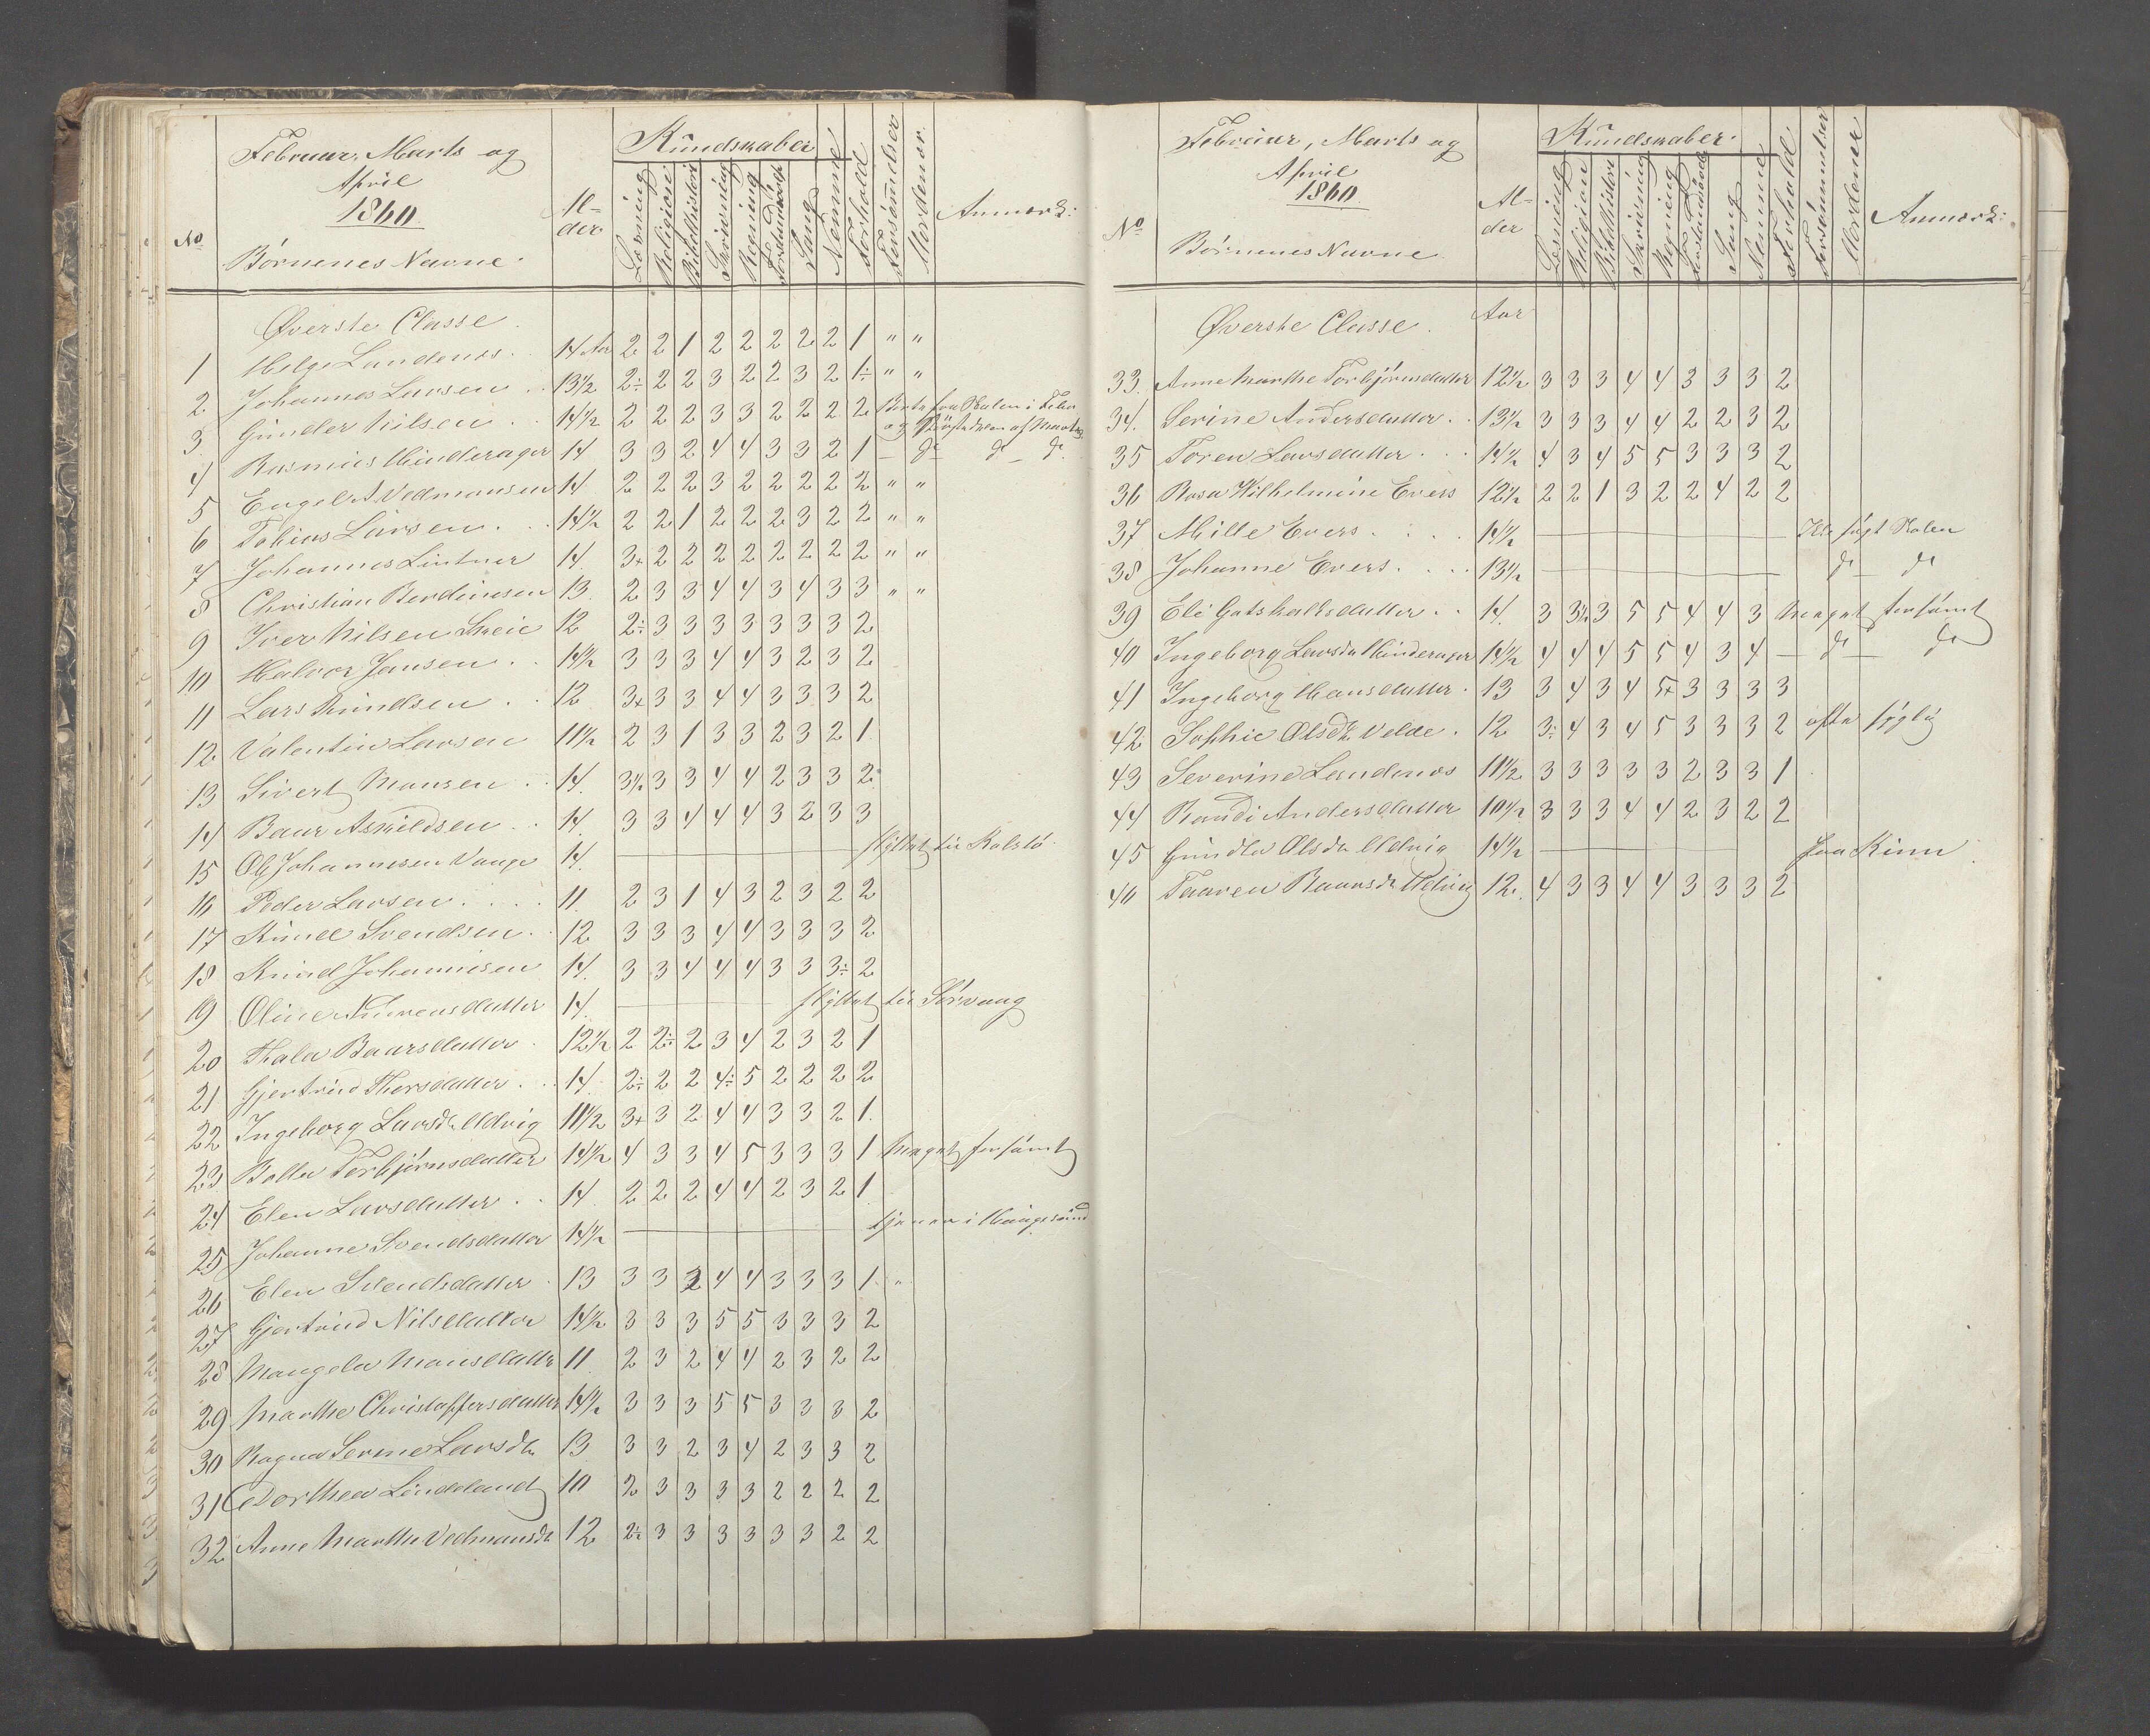 Februar, Marts og
April
1860
No
Børnenes Navne.
Al-
der
Kundskaber
Læsning
Religion
Bibelhistori
Skrivning
Regning
Forstand
Sang
Nemme
Forhold
Forsømmelser
Uordener.
Anmærk:
Øverste Classe.
1 Helge Landenæs. 14 Aar 2 2 1 2 2 2 2 2 1 " "
2 Johannes Larsen 13½ 2÷ 2 2 3 2 2 3 2 1÷ " "
3 Gunder Nilsen 14½ 2 2 2 3 3 2 2 2 2 Borte fra Skolen i Febr
4 Rasmus Hinderager 14 3 3 2 4 4 3 3 2 1 — do do do
5 Engel A Vedmansen 14 2 2 2 3 2 2 2 2 2 " "
6 Tobias Larsen. 14½ 2 2 1 2 2 2 3 2 2 " "
7 Johannes Lintner 14. 3+ 2 2 2 2 2 2 2 2 " "
8 Christian Berdinesen 13. 2 3 3 4 4 3 4 3 3 " "
9 Iver Nilsen Skeie 12 2÷ 3 3 3 3 3 3 3 2
10 Halvor Jansen. 14½ 3 3 3 4 4 3 2 3 2
11 Lars Knudsen 12 3+ 3 3 4 4 3 3 3 2
12 Valentin Larsen 11½ 2 3 1 3 3 2 3 2 1
13 Sivert Monsen 14. 3½ 3 3 4 4 2 3 3 2
14 Baar Askildsen 14. 3 3 4 4 4 3 2 3 3
15 Ole Johannesen Vaage 14. flyttet til Kalstø
16 Peder Larsen 11. 2 3 1 4 3 2 3 2 2
17 Knud Svendsen. 12 3 3 3 4 4 3 3 3 2
18 Knud Johannesen 14. 3 3 4 4 4 3 3 3÷ 2
19 Oline Andreasdatter 14. flyttet til Sørvaag
20 Thala Baarsdatter. 12½ 2 2÷ 2 3 4 2 3 2 1
21 Gjertrud Thorsdatter. 14. 2÷ 2 2 4÷ 5 2 2 2 2
22 Ingeborg Larsdr Udvig 11½ 3+ 3 2 4 4 3 3 2 1.
23 Bolla Torbjørnsdatter 14½ 4 3 3 4 5 3 3 3 1 Meget forsømt
24 Elen Larsdatter 14. 2 2 2 4 4 2 3 2 1
25 Johanne Svendsdatter 14½ tjener i Haugesund
26 Elen Svendsdatter 13 3 3 2 4 4 3 3 3 1. "
27 Gjertrud Nilsdatter 14½ 3 3 3 5 5 3 3 3 2
28 Mangela Monsdattr 11 2 3 2 4 4 2 3 2 2
29 Marthe Christoffersdatter 14½ 3 3 3 5 5 3 3 3 2
30 Ragna Serine Larsdr 13 3 3 2 3 4 2 3 3 2
31 Dorthea Lindeland 10 2 3 3 3 3 2 2 2 2
32 Anne Marthe Vedmansdr 12 2½ 3 3 3 3 3 3 2 2
Februar, Marts og
April
1860.
No
Børnenes Navne
Al-
der
Kundskaber.
Læsning
Religion
Bibelhistori
Skrivning
Regning
Forstand
Sang
Nemme
Forhold
Forsømmelser
Uordener
Anmærk:
Øverste Classe. Aar
33. Anne Marthe Torbjørnsdatter 12½ 3 3 3 4 4 3 3 3 2
34. Serine Andersdatter. 13½ 3 3 3 4 4 2 2 3 2
35 Toren Larsdatter 14½ 4 3 4 5 5 3 3 3 2
36 Rosa Wilhelmine Evers 12½ 2 2 1 3 2 2 4 2 2
37 Mille Evers 14½ Ikke søgt Skolen
38 Johanne Evers. 13½ do do
39 Eli Gotskalksdatter. 14. 3 3½ 3 5 5 4 4 3 Meget forsømt
40 Ingeborg Larsdr Hinderager 14½ 4 4 4 5 5 4 3 4 — do — do
41 Ingeborg Hansdatter. 13 3 4 3 4 5+ 3 3 3 3
42 Sophie Olsdr Velde. 12 3÷ 4 3 4 5 3 3 3 2 ofte sygelig
43 Severine Landenæs 11½ 3 3 3 3 3 2 3 3 1
44 Randi Andersdatter 10½ 3 3 3 4 4 2 3 2 2
45 Gundla Olsdr Udvig 14½ paa Kinn
46 Taaren Baarsdr Udvig 12. 4 3 3 4 4 3 3 3 2